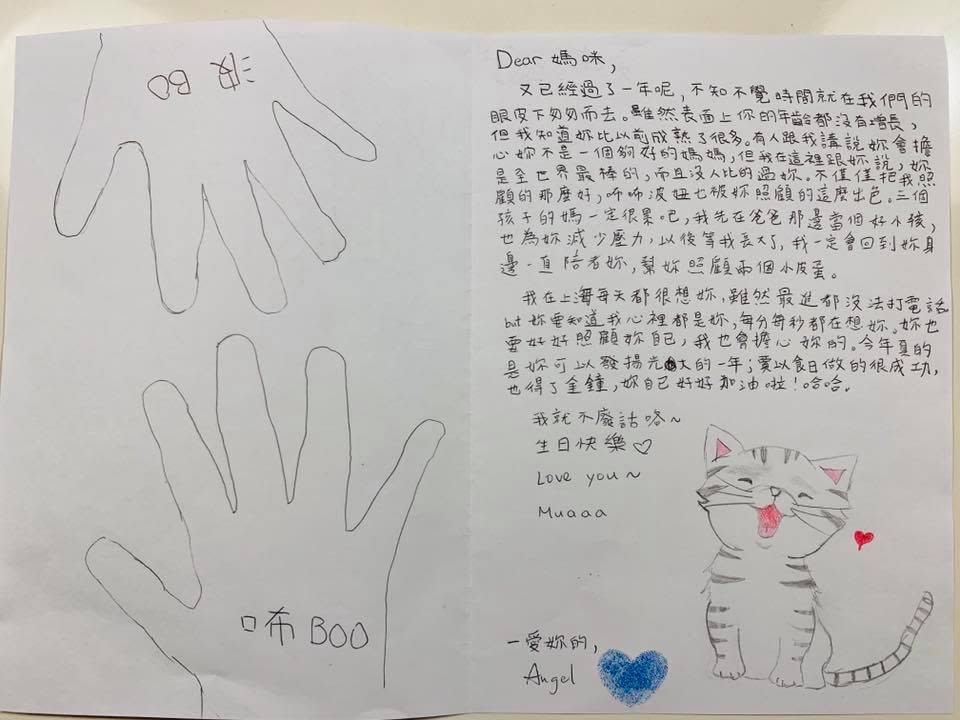 波 BO
咘 BOO
Dear 媽咪,
又已經過了一年呢,不知不覺時間就在我們的
眼皮下匆匆而去。雖然表面上你的年齡都沒有增長,
但我知道妳比以前成熟了很多。有人跟我講說妳會擔
心妳不是一個夠好的媽媽,但我在這裡跟妳說,妳
是全世界最棒的,而且沒人比的過妳。不僅僅把我照
顧的那麼好,咘咘波妞也被妳照顧的這麼出色。三個
孩子的媽一定很累吧,我先在爸爸那邊當個好小孩,
也為妳減少壓力,以後等我長大了,我一定會回到妳身
邊一直陪著妳,幫妳照顧兩個小皮蛋。
我在上海每天都很想妳,雖然最進都沒法打電話
but 妳要知道我心裡都是妳,每分每秒都在想妳。妳也
要好好照顧妳自己,我也會擔心妳的。今年真的
是妳可以發揚光大的一年;愛以食日做的很成功,
也得了金鐘,妳自己好好加油啦!哈哈。
我就不廢話咯~
生日快樂♡
Love you~
Muaaa
一愛妳的,
Angel